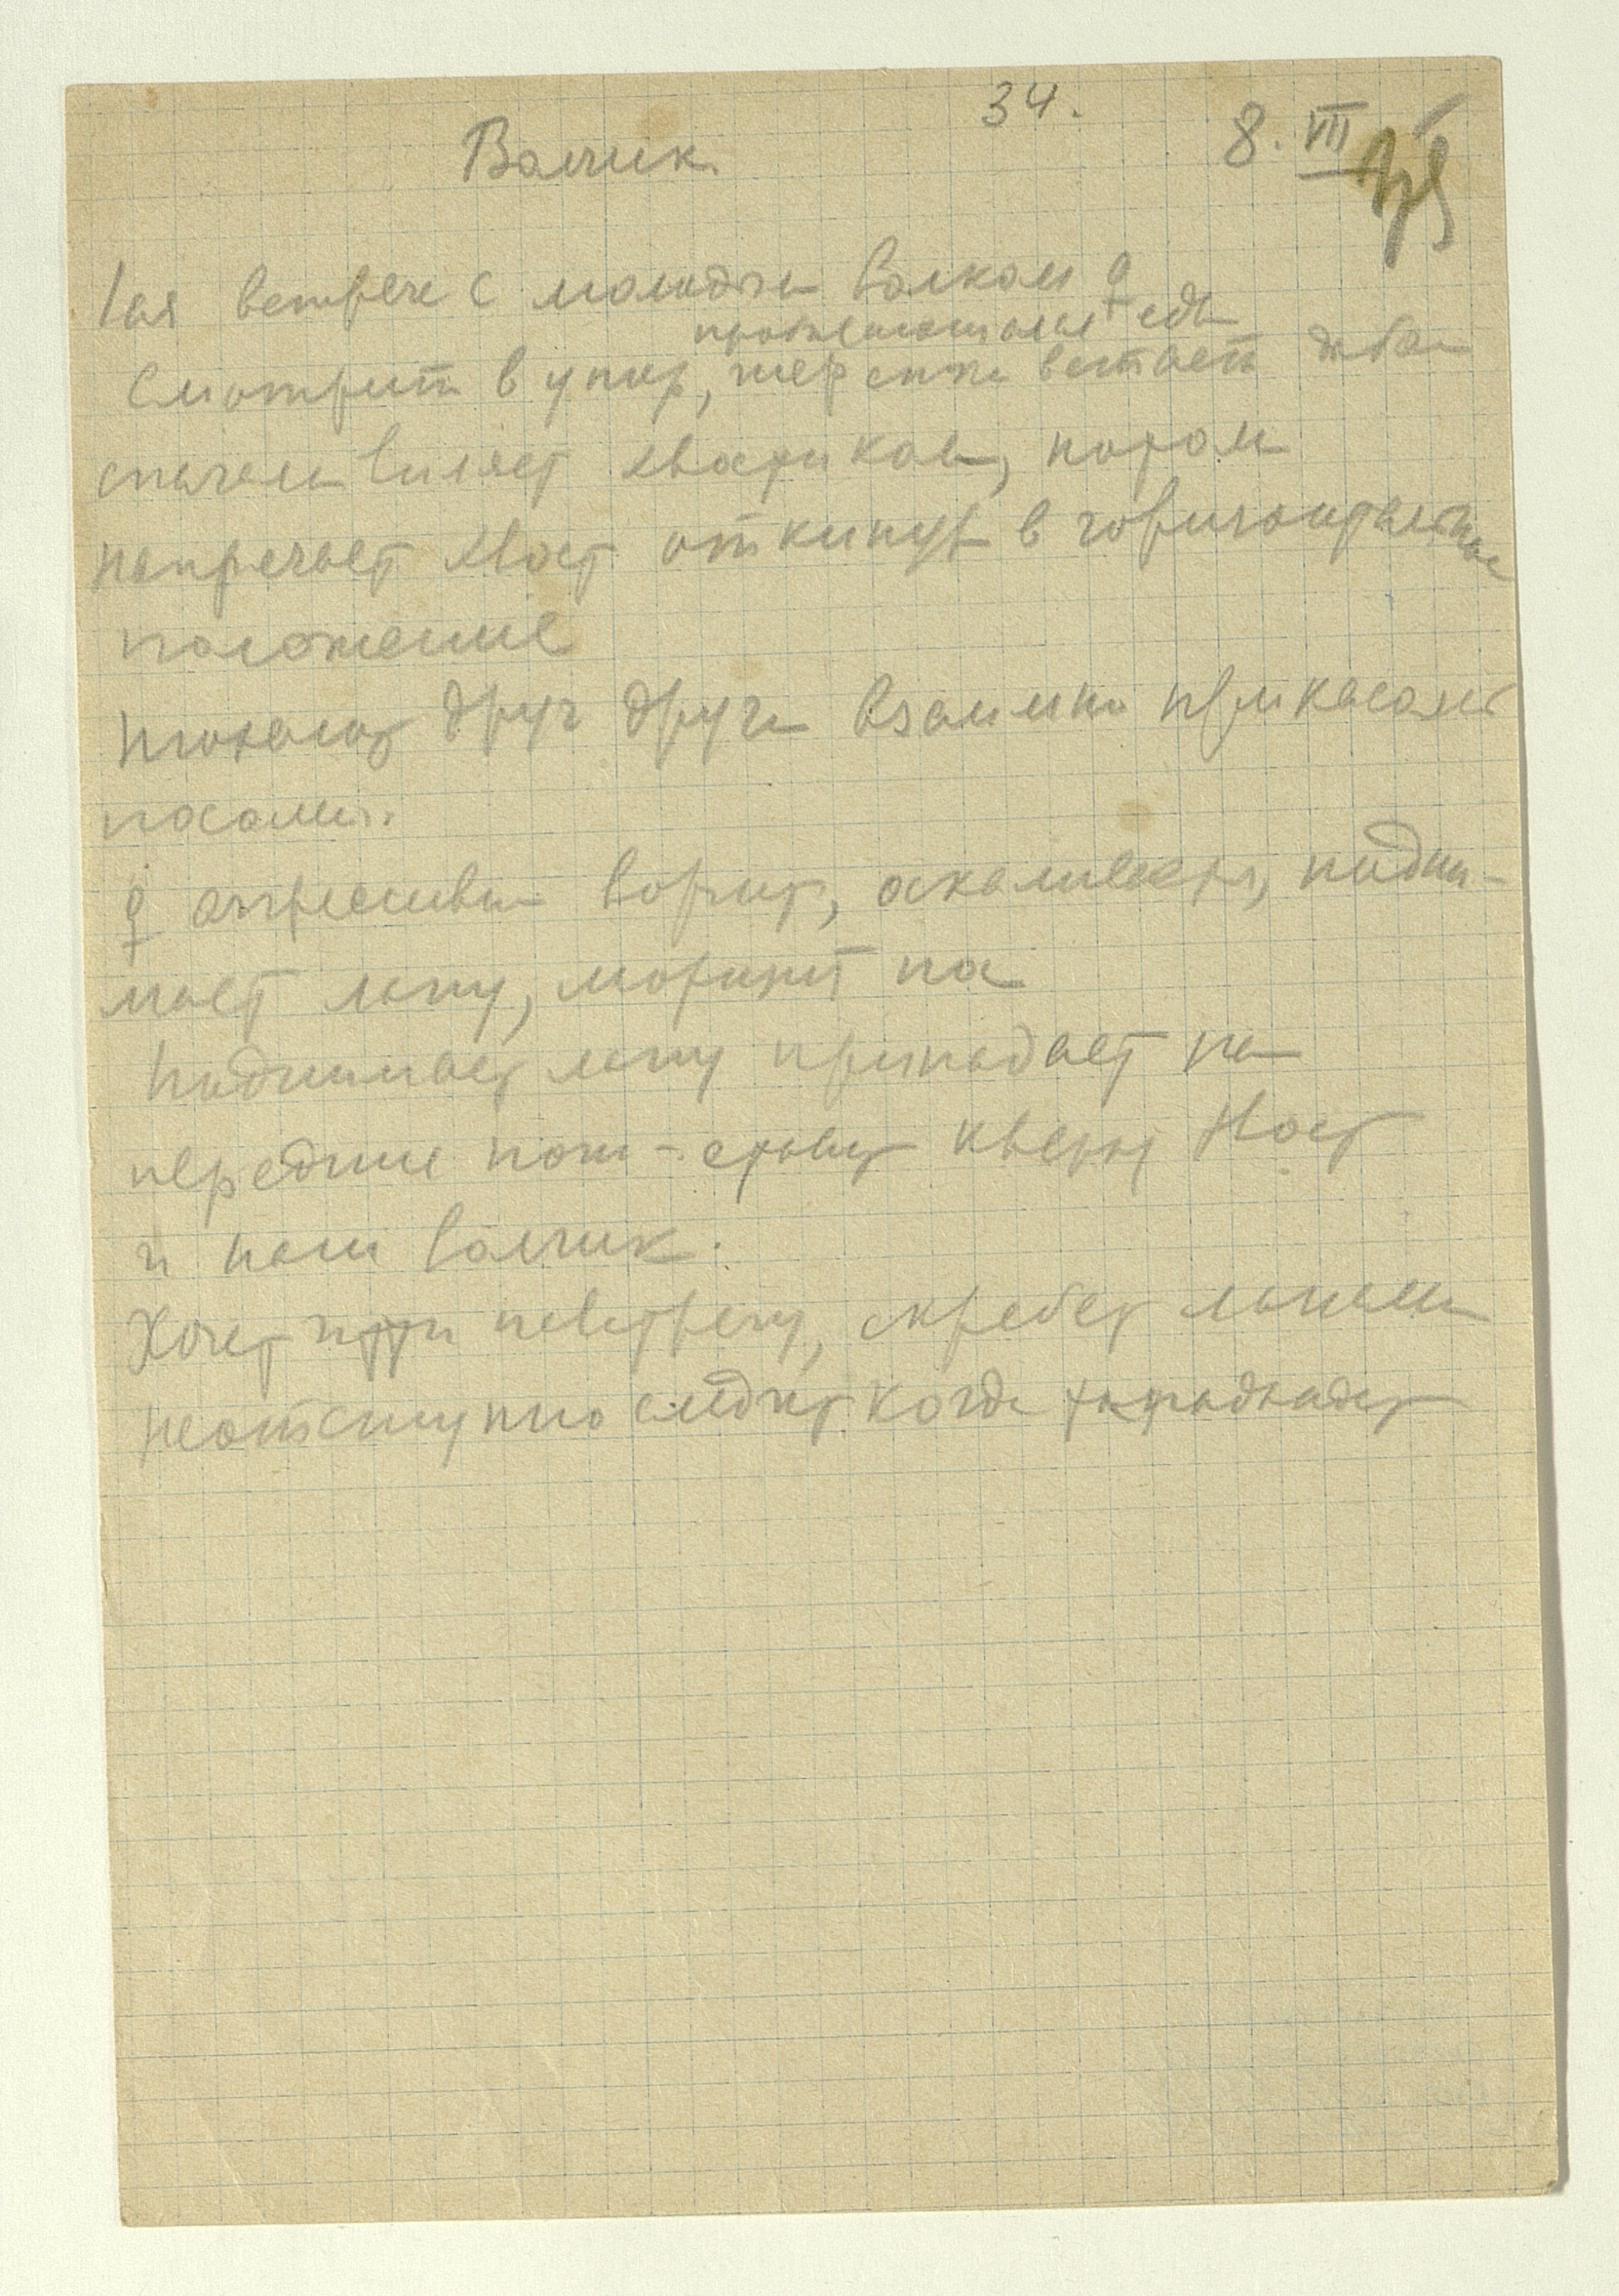 34.
Волчик.
8. VII
1ая встреча с молодым волком ♀
Смотрит в упор, шерстка встает дыбом
сначала виляет хвостиком, потом
напрягает хвост откинув в горизонтальное
положение
Нюхают друг друга взаимно прикасаясь
носами.
♀ агрессивна ворчит, оскаливается, подни-
мает лапу, морщит на
Поднимает лапу припадает на
передние ноги - ставит кверху хвост
и наш волчик.
Хочет идти навстречу, скребет лапами
неотступно следит когда